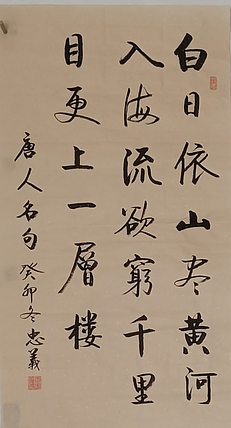 白日依山尽黄河
入海流欲窮千里
目更上一層楼
唐人名句 癸卯冬忠義